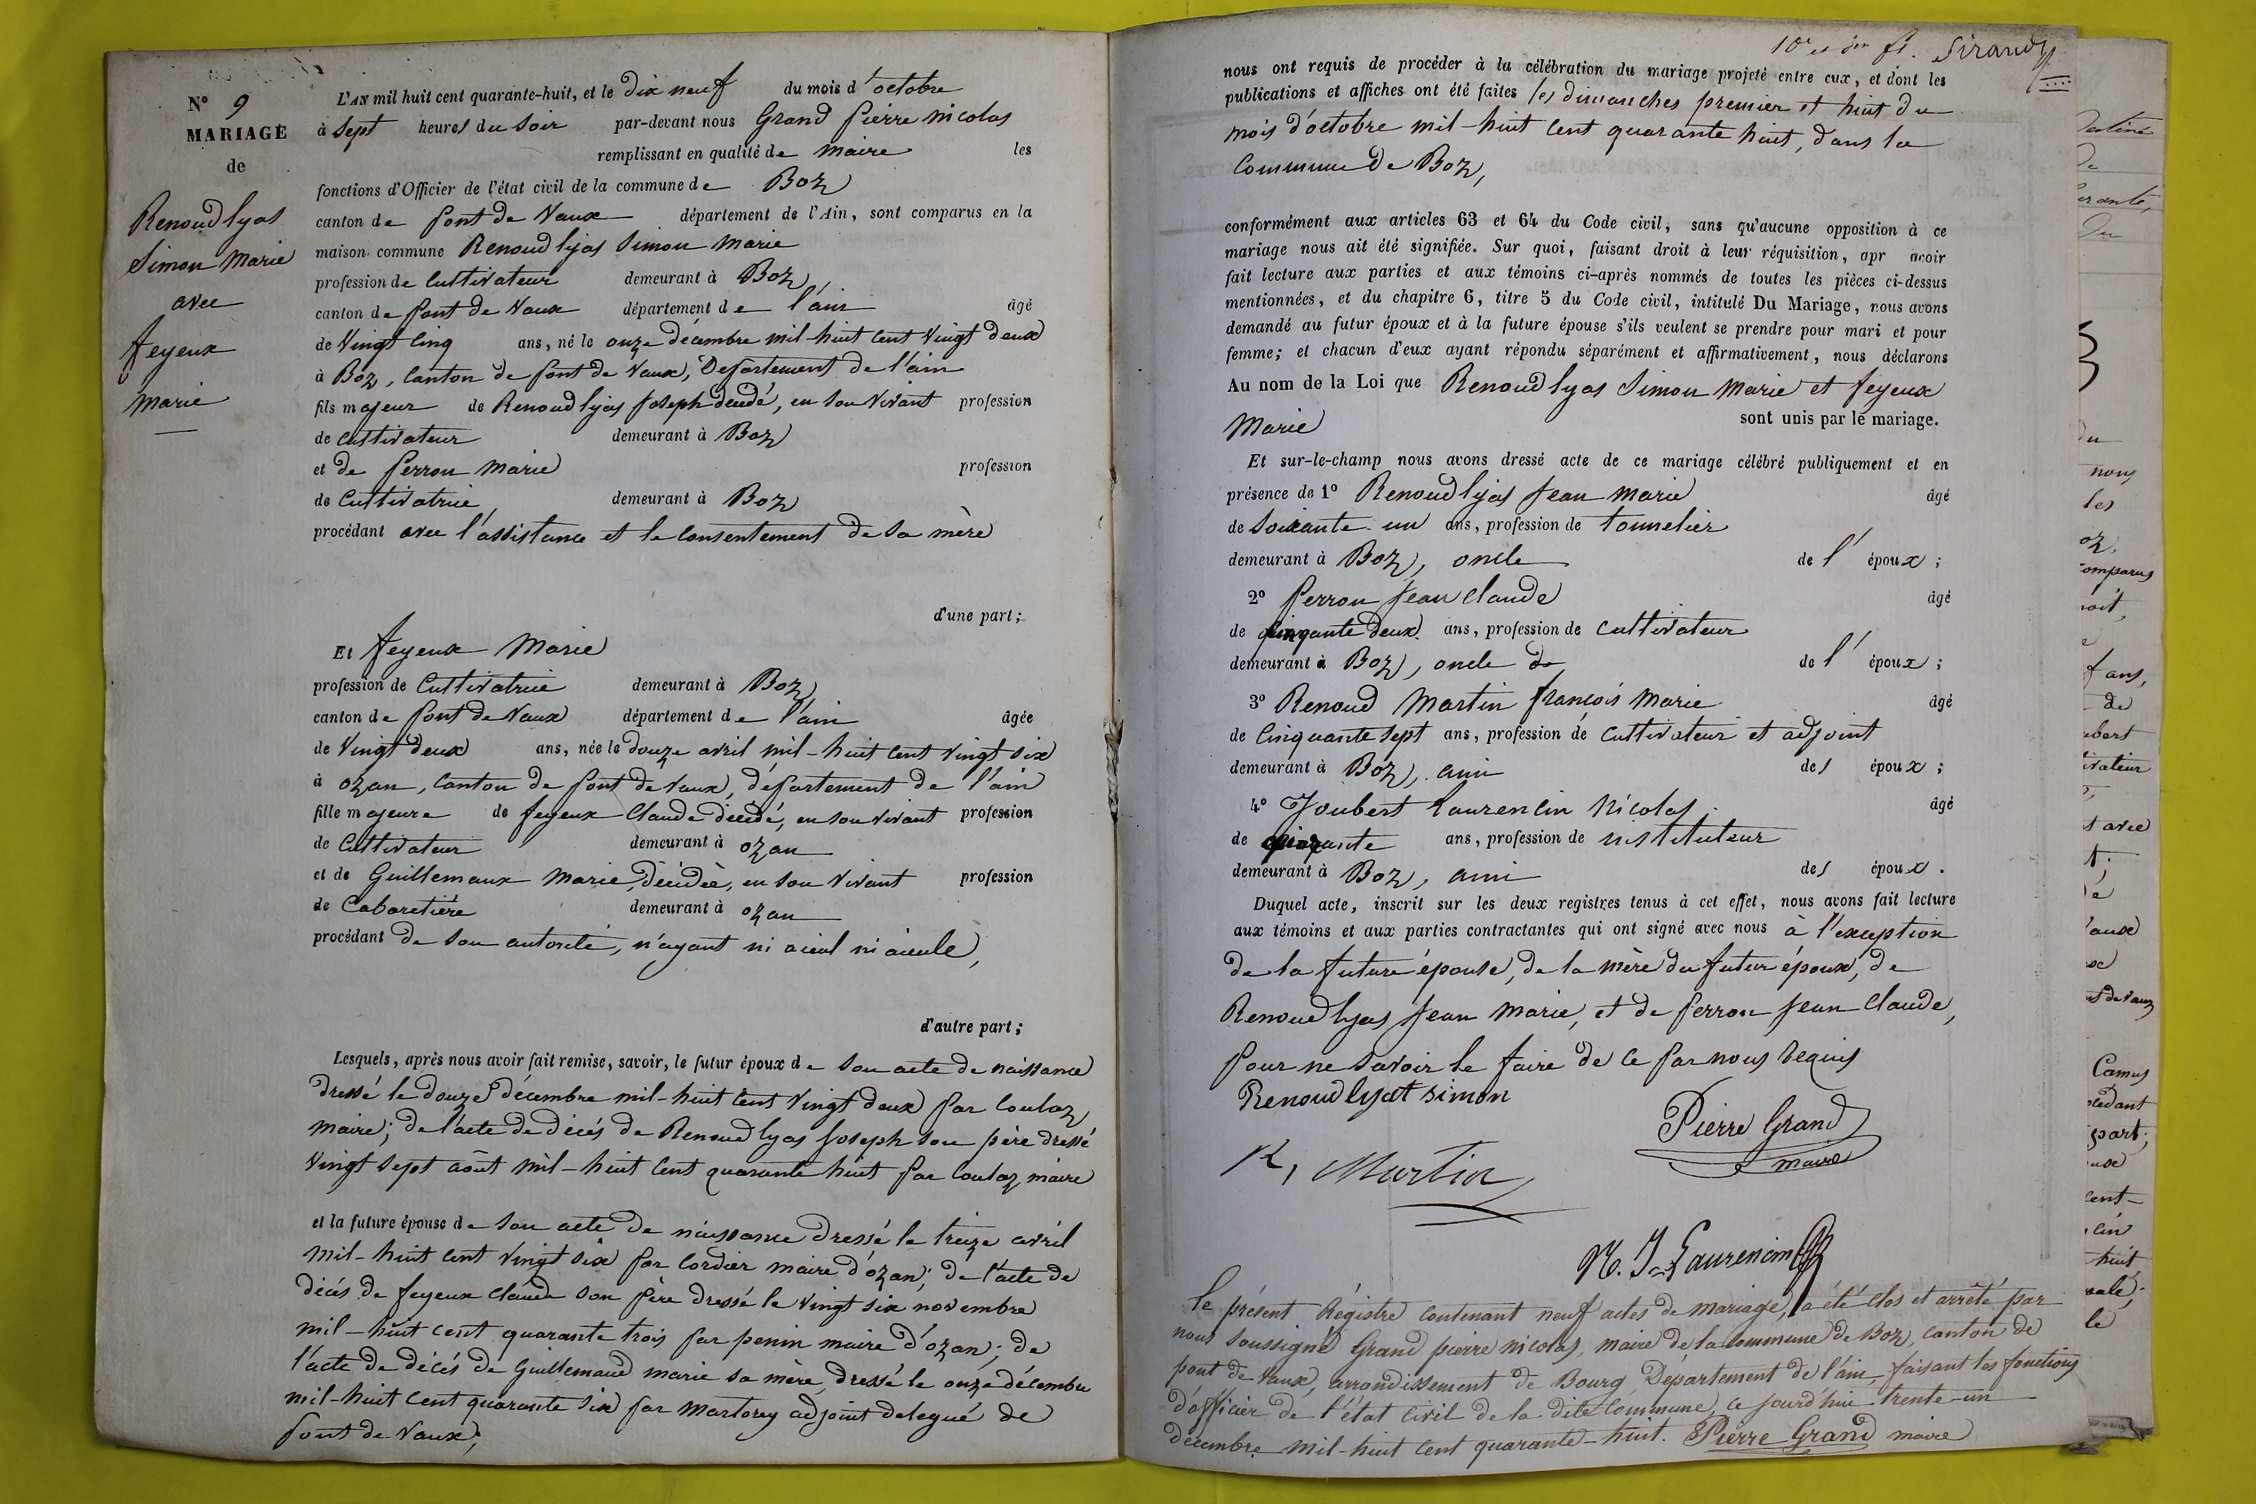 N° 9
MARIAGE
de
Renoud lyas
Simon Marie
avec
feyeux
Marie
L'AN mil huit cent quarante-huit, et le dix neuf du mois d'octobre
à sept heures du soir par-devant nous Grand pierre nicolas
remplissant en qualité de maire les
fonctions d'Officier de l'état civil de la commune de Boz
canton de pont de Vaux département de l'Ain, sont comparus en la
maison commune Renoud lyas Simon Marie
profession de Cultivateur demeurant à Boz
canton de pont de Vaux département de l'ain âgé
de Vingt Cinq ans, né le onze décembre mil-huit cent vingt deux
à Boz, Canton de pont de Vaux, Département de l'ain
fils majeur de Renoud lyas Joseph décédé, en son vivant profession
de Cultivateur demeurant à Boz
et de perron Marie profession
de Cultivatrice demeurant à Boz
procédant avec l'assistance et le consentement de sa mère
d'une part;
Et feyeux Marie
profession de Cultivatrice demeurant à Boz
canton de pont de Vaux département de l'ain âgée
de Vingt deux ans, née le douze avril mil-huit cent vingt six
à ozan, Canton de pont de Vaux, département de l'ain
fille majeure de feyeux Claude décédé, en son vivant profession
de Cultivateur demeurant à ozan
et de Guillemaux Marie, décédée, en son vivant profession
de Cabaretière demeurant à ozan
procédant de son autorité, n'ayant ni aieul ni aieule,
d'autre part;
Lesquels, après nous avoir fait remise, savoir, le futur époux de son acte de naissance
dressé le douze décembre mil-huit cent vingt deux par Coulaz
maire; de l'acte de décés de Renoud lyas Joseph son père dressé
vingt sept août mil-huit cent quarante huit par Coulaz maire
et la future épouse de son acte de naissance dressé le treize avril
mil-huit cent vingt six par Cordier maire d'ozan; de l'acte de
décés de feyeux Claude son père dressé le vingt six novembre
mil-huit cent quarante trois par penin maire d'ozan; de
l'acte de décés de Guillemaud marie sa mère, dressé le onze décembre
mil-huit cent quarante six par Martorey adjoint delegué de
pont de Vaux;
10e et der ft. Sirand
nous ont requis de procéder à la célébration du mariage projeté entre eux, et dont les
publications et affiches ont été faites les dimanches premier et huit du
mois d'octobre mil-huit cent quarante huit, dans la
Commune de Boz,
conformément aux articles 63 et 64 du Code civil, sans qu'aucune opposition à ce
mariage nous ait été signifiée. Sur quoi, faisant droit à leur réquisition, apr avoir
fait lecture aux parties et aux témoins ci-après nommés de toutes les pièces ci-dessus
mentionnées, et du chapitre 6, titre 5 du Code civil, intitulé Du Mariage, nous avons
demandé au futur époux et à la future épouse s'ils veulent se prendre pour mari et pour
femme; et chacun d'eux ayant répondu séparément et affirmativement, nous déclarons
Au nom de la Loi que Renoud lyas Simon Marie et feyeux
Marie sont unis par le mariage.
Et sur-le-champ nous avons dressé acte de ce mariage célébré publiquement et en
présence de 1° Renoud lyas Jean Marie âgé
de soixante un ans, profession de tonnelier
demeurant à Boz, oncle de l'époux;
2° perron Jean Claude âgé
de cinquante deux ans, profession de cultivateur
demeurant à Boz, oncle de de l'époux;
3° Renoud Martin françois Marie âgé
de Cinquante sept ans, profession de Cultivateur et adjoint
demeurant à Boz, ami des époux;
4° Joubert Laurencin Nicolas âgé
de ans, profession de instituteur
demeurant à Boz, ami des époux.
Duquel acte, inscrit sur les deux registres tenus à cet effet, nous avons fait lecture
aux témoins et aux parties contractantes qui ont signé avec nous à l'exception
de la future épouse, de la mère du futur époux, de
Renoud lyas Jean Marie, et de perron Jean Claude,
pour ne savoir le faire de ce par nous requis
Renoud lyat simon
Pierre Grand
maire
R, Martin
N. J. Laurencin
le présent Régistre contenant neuf actes de mariage, a été clos et arrêté par
nous soussigné Grand pierre nicolas, maire de la commune de Boz, canton de
pont de Vaux, arrondissement de Bourg, Département de l'ain, faisant les fonctions
d'officier de l'état civil de la dite Commune, ce jourd'hui trente-un
décembre mil-huit cent quarante-huit. Pierre Grand maire